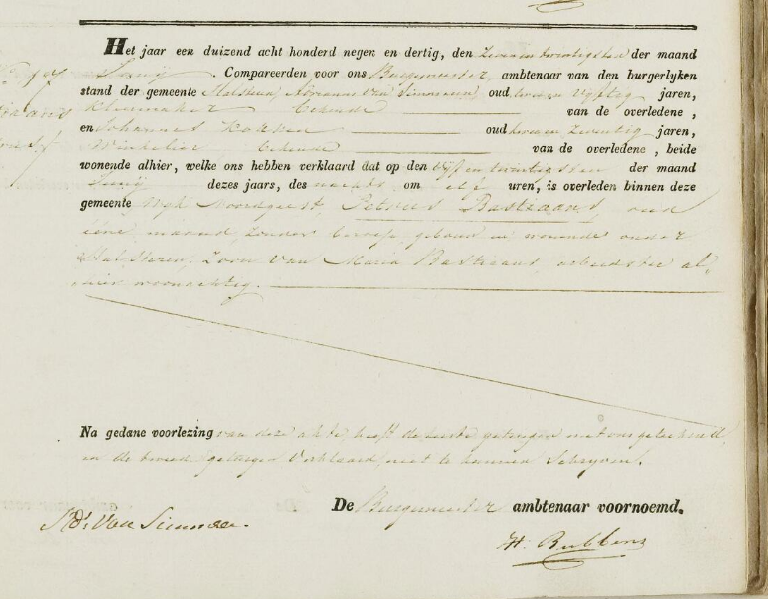 Het jaar een duizend acht honderd negen en dertig, den zeven en twintigsten der maand
Junij . Compareerden voor ons Burgemeester, ambtenaar van den burgerlyken
stand der gemeente Halsteren, Adrianus van oud twee en vyftig jaren,
Kleermaker bekende van de overledene ,
en Johannes oud twee en zeventig jaren,
Winkelier bekende van de overledene , beide
wonende alhier, welke ons hebben verklaard dat op den vyf en twintigsten der maand
Junij dezes jaars, des om elf uren, is overleden binnen deze
gemeente Wyk Noordgeest, Petrus Bastiaans, oud
eene maand, zonder beroep, geboren en wonende onder
Halsteren, Zoon van Maria Bastiaans, arbeidster al-
hier woonachtig.
Na gedane voorlezing van deze akte, heeft de eerste getuigen met ons geteekend,
en de tweede getuigen verklaard, niet te kunnen schryven.
De Burgemeester ambtenaar voornoemd.
Ads. Van
H. Bubbens